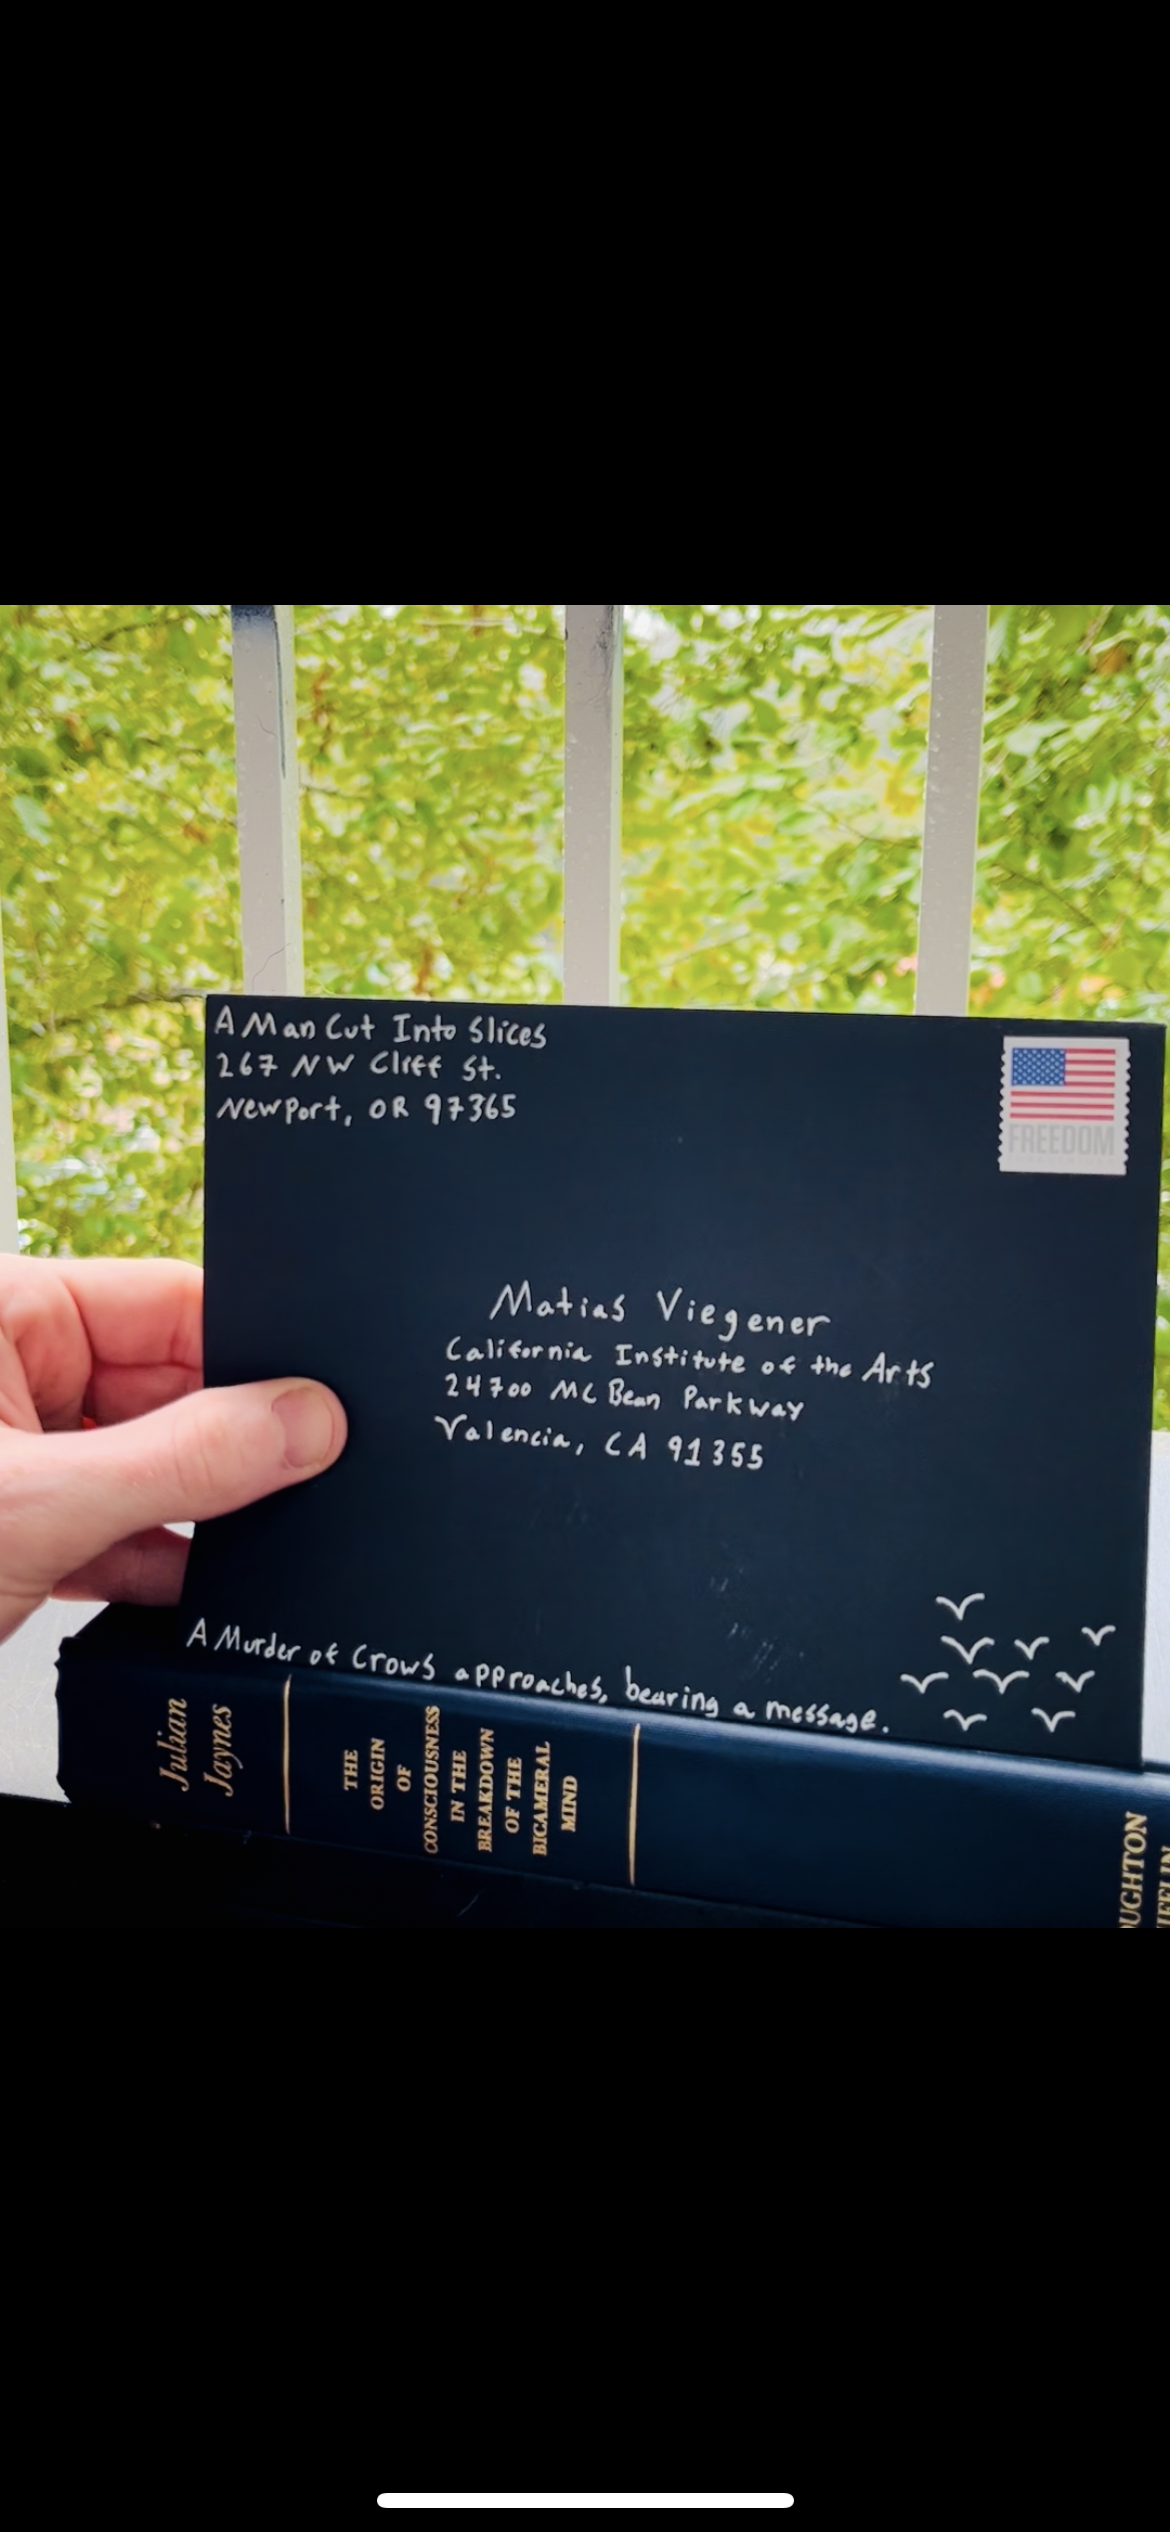 A Man Cut Into Slices
267 NW Cliff St.
Newport, OR 97365
FREEDOM
Matias Viegener
California Institute of the Arts
24700 McBean Parkway
Valencia, CA 91355
A Murder of Crows approaches, bearing a message.
Julian
Jaynes
THE
ORIGIN
OF
CONSCIOUSNESS
IN THE
BREAKDOWN
OF THE
BICAMERAL
MIND